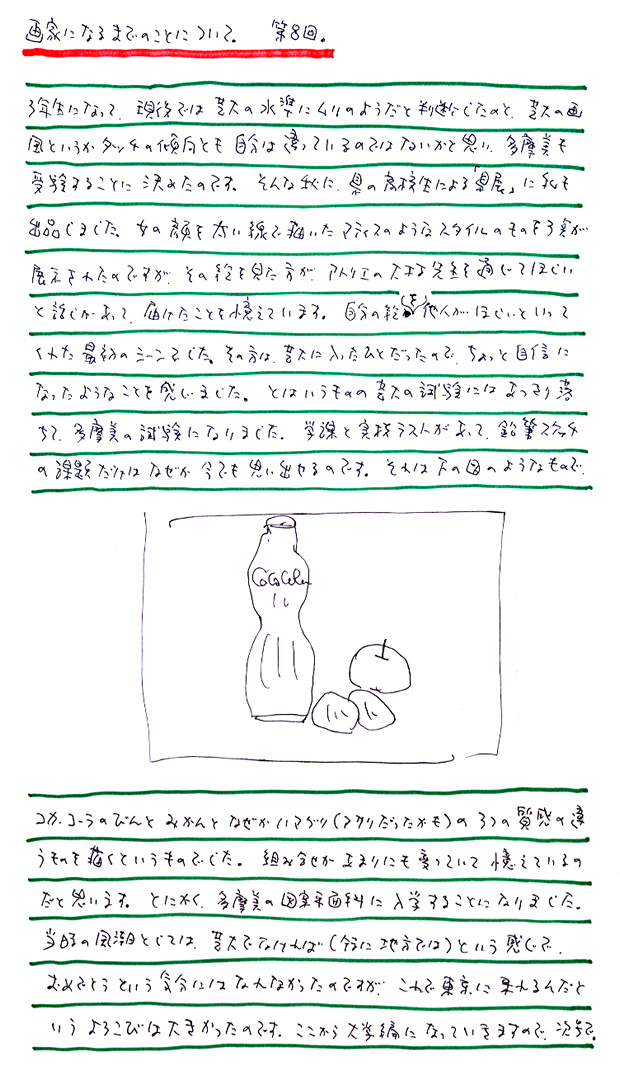 画家になるまでのことについて。 第8回。
3年生になって、現役では芸大の水準にムリのようだと判断したのと、芸大の画
風というかタッチの傾向とも自分は違っているのではないかと思い、多摩美も
受験することに決めたのです。そんな秋に、県の高校生による「県展」に私も
出品しました。女の顔を太い線で描いたマティスのようなスタイルのものを3点が
展示されたのですが、その絵を見た方が、アトリエの先生を通じてほしい
と話があって、届けたことを憶えています。自分の絵(を)他人がほしいといって
くれた最初のシーンでした。その方は、芸大に入ったひとだったので、ちょっと自信に
なったようなことを感じました。とはいうものの芸大の試験にはあっさり落
ちて、多摩美の試験になりました。学課と実技テストがあって、鉛筆スケッチ
の課題だけはなぜか今でも思い出せるのです。それは下の図のようなもので、
CocaCola
コカ・コーラのびんとみかんとなぜかハマグリ(アサリだったかも)の3つの質感の違
うものを描くというものでした。組み合せがあまりにも変っていて憶えているの
だと思います。とにかく、多摩美の図案平面科に入学することになりました。
当時の風潮としては、芸大でなければ(特に地方では)という感じで、
おめでとうという気分にはなれなかったのですが、これで東京に来れるんだと
いうよろこびは大きかったのです。ここから大学編になっていきますので、次号で。